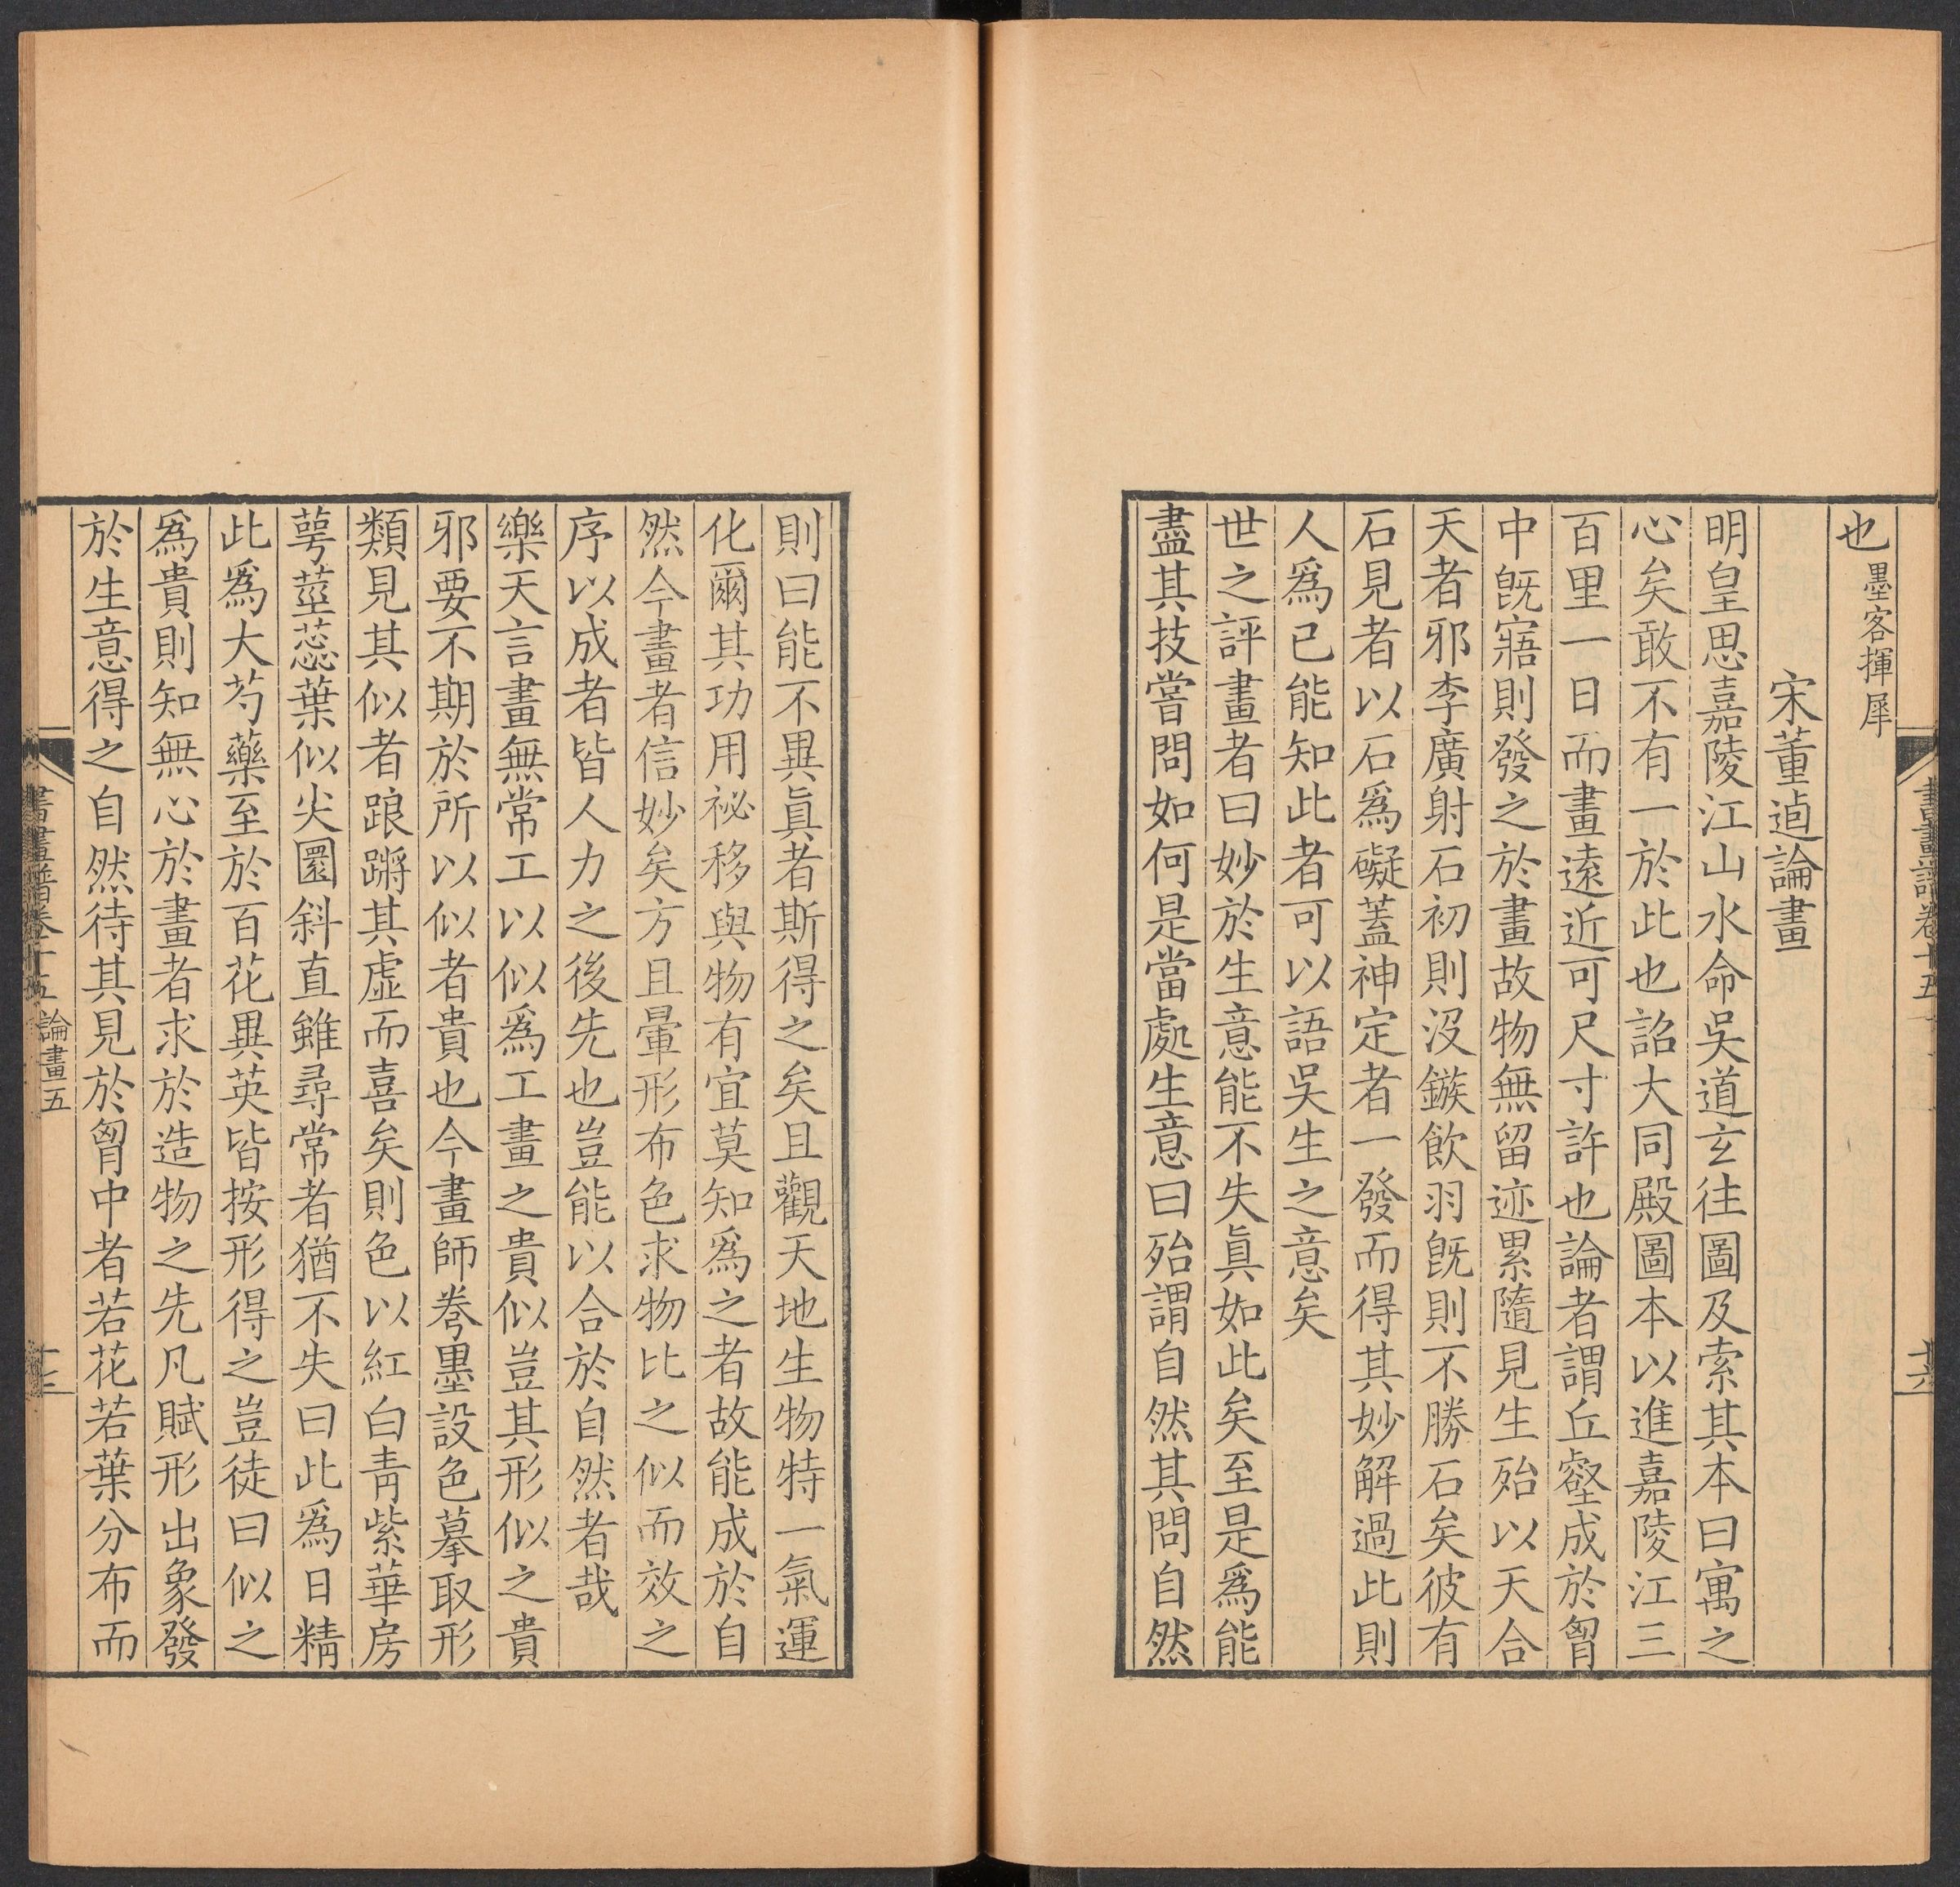 書畫譜卷十五
十六
也墨客揮犀
宋董逌論畫
明皇思嘉陵江山水命吳道玄往圖及索其本曰寓之
心矣敢不有一於此也詔大同殿圖本以進嘉陵江三
百里一日而畫遠近可尺寸許也論者謂丘壑成於胷
中旣寤則發之於畫故物無留迹累隨見生殆以天合
天者邪李廣射石初則沒鏃飲羽旣則不勝石矣彼有
石見者以石爲礙蓋神定者一發而得其妙解過此則
人爲已能知此者可以語吳生之意矣
世之評畫者曰妙於生意能不失眞如此矣至是爲能
盡其技嘗問如何是當處生意曰殆謂自然其問自然
則曰能不異眞者斯得之矣且觀天地生物特一氣運
化爾其功用祕移與物有宜莫知爲之者故能成於自
然今畫者信妙矣方且暈形布色求物比之似而效之
序以成者皆人力之後先也豈能以合於自然者哉
樂天言畫無常工以似爲工畫之貴似豈其形似之貴
邪要不期於所以似者貴也今畫師卷墨設色摹取形
類見其似者踉蹡其虛而喜矣則色以紅白青紫華房
萼莖蕊葉似尖圜斜直雖尋常者猶不失曰此爲日精
此爲大芍藥至於百花異英皆按形得之豈徒曰似之
爲貴則知無心於畫者求於造物之先凡賦形出象發
於生意得之自然待其見於胷中者若花若葉分布而
書畫譜卷十五 論畫五